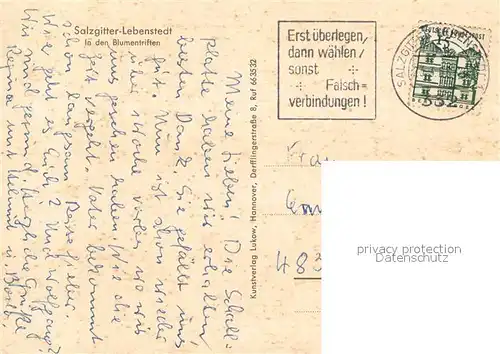 Salzgitter-Lebenstedt
In den Blumentriften
Meine Lieben! Die Schall=
platte haben wir erhalten,
besten Dank. Sie gefällt uns
gut. Nun ist schon wieder
eine Woche vorbei, wo wir
uns gesehen haben. Wie die
Zeit vergeht. Vater bekommt
schon langsam Reisefieber.
Wie geht es Euch? Und Wolfgang?
Wir sind gesund. Herzliche Grüße
Helmut u.
Kunstverlag Lukow, Hannover, Derfflingerstraße 8, Ruf 663532
Erst überlegen,
dann wählen/
sonst
Falsch=
verbindungen!
SALZGITTER
332
DEUTSCHE BUNDESPOST
Frau
483
privacy protection
Datenschutz